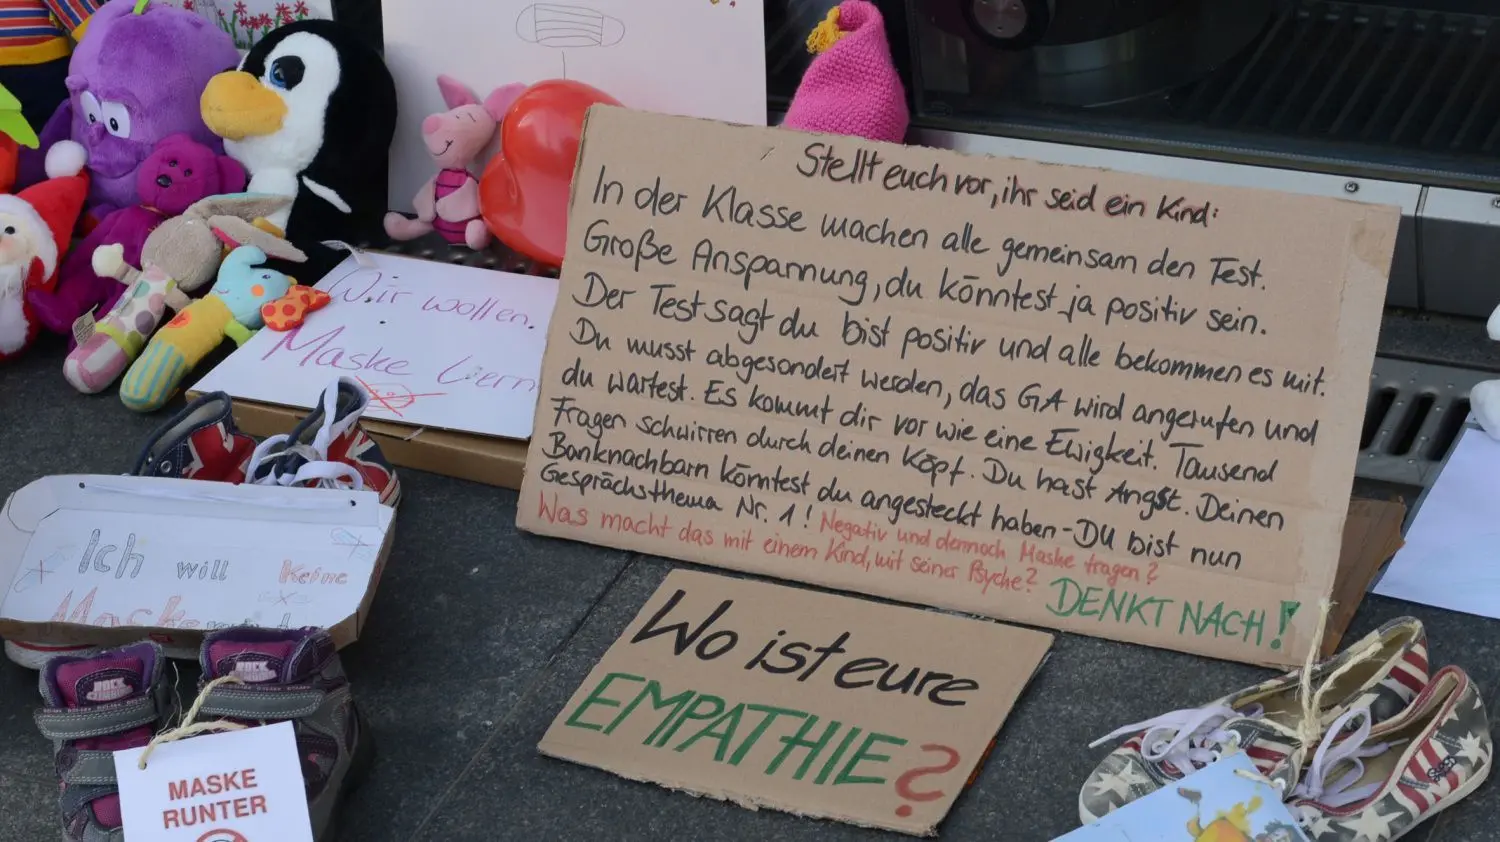 Stellt euch vor, ihr seid ein Kind:
In der Klasse machen alle gemeinsam den Test.
Große Anspannung, du könntest ja positiv sein.
Der Test sagt du bist positiv und alle bekommen es mit.
Du musst abgesondert werden, das GA wird angerufen und
du wartest. Es kommt dir vor wie eine Ewigkeit. Tausend
Fragen schwirren durch deinen Kopf. Du hast Angst. Deinen
Banknachbarn könntest du angesteckt haben - DU bist nun
Gesprächsthema Nr. 1! Negativ und dennoch Maske tragen?
Was macht das mit einem Kind, mit seiner Psyche?
DENKT NACH!
Wo ist eure
EMPATHIE?
Wir wollen
Maske
Ich will Keine
Maske
ROCK
ROCK
MASKE
RUNTER